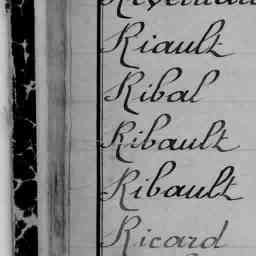 Riault
Ribal
Ribault
Ribault
Ricard